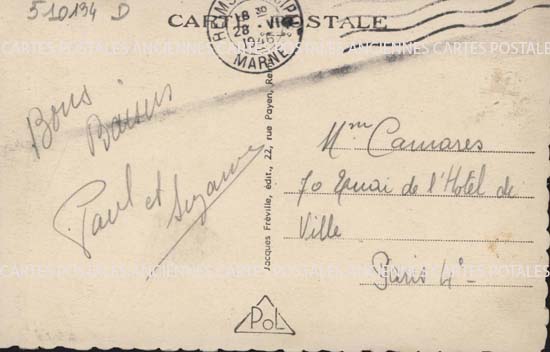 510134 D
CARTE POSTALE
18 30
28 · VII
MARNE
CARTES POSTALES ANCIENNES CARTES POSTALES ANCIENNES CARTES POSTALES
Bons
Baisers
Paul et Suzanne
Jacques Fréville, édit., 22, rue Payen,
Mme Camares
70 Quai de l'Hotel de
Ville
Paris 4e
CARTES POSTALES ANCIENNES CARTES POSTALES ANCIENNES CARTES POSTALES
PoL